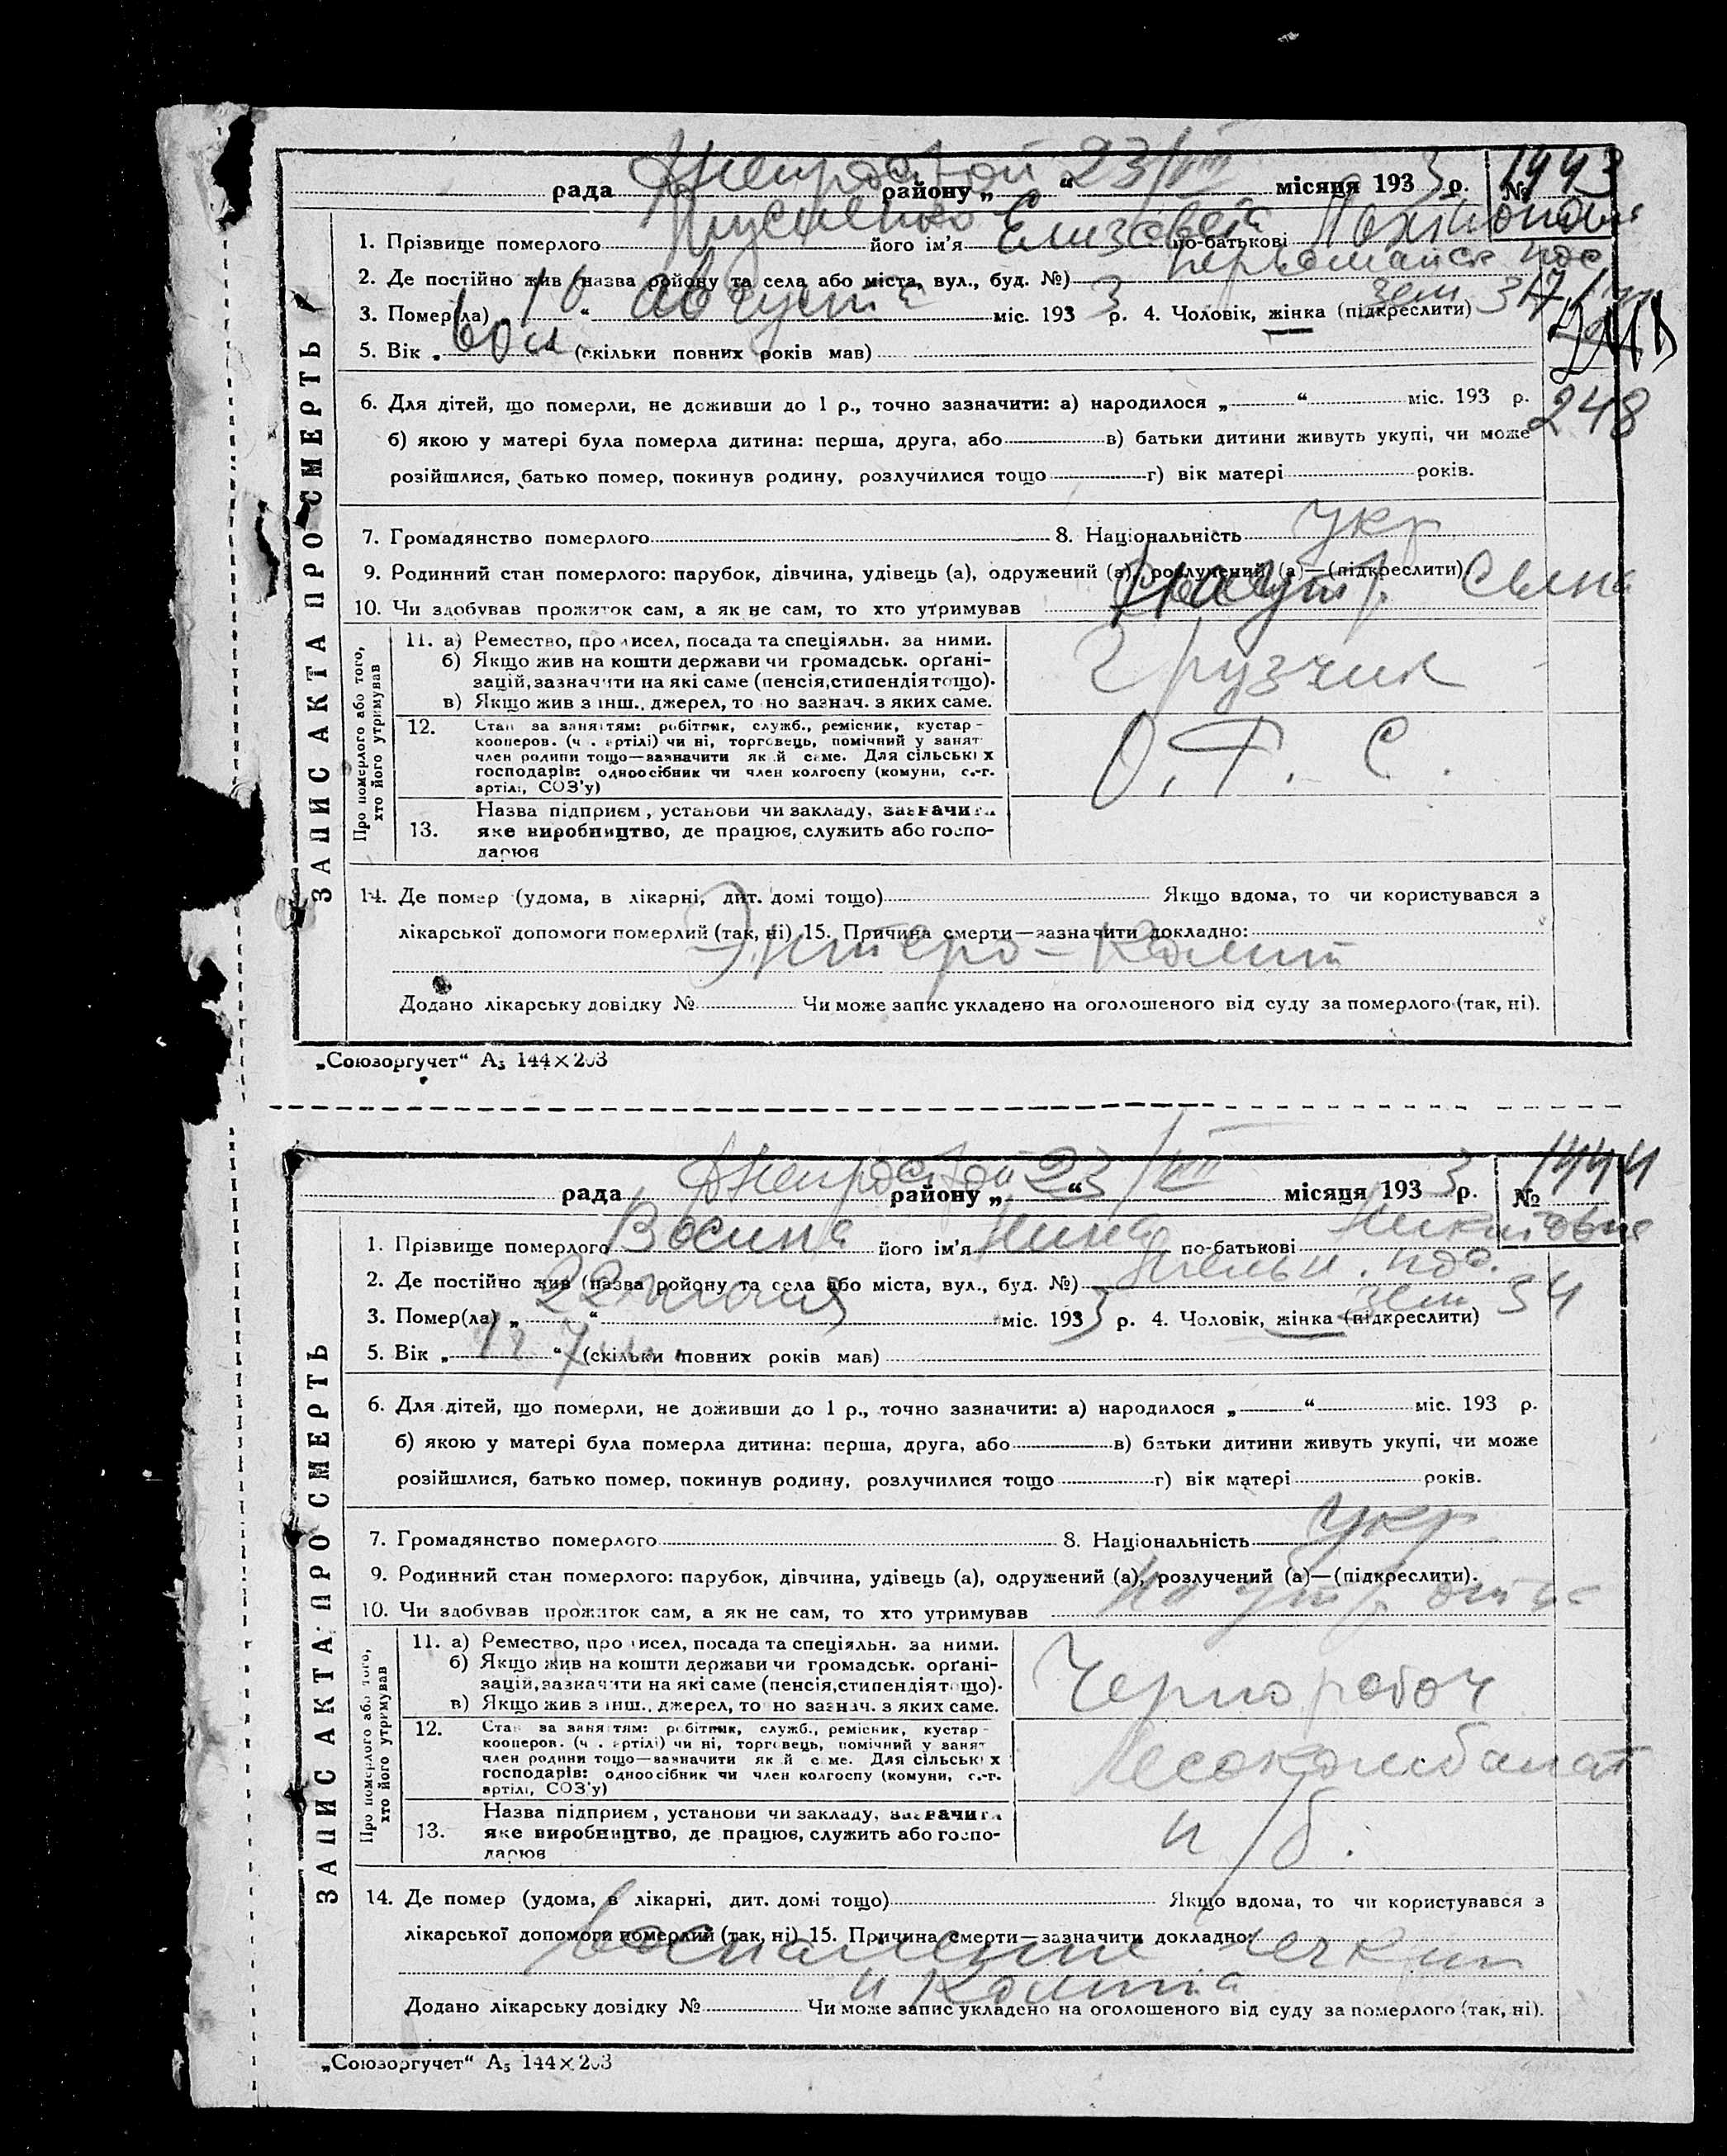 Днепрострой 23/VIII
рада районy „ “ місяця 1933 р. № 1443
1. Прізвище померлого його ім’я Елизавета по-батькові
2. Де постійно жив (назва району та села або міста, вул., буд. №) Первомайск пос
зем 317
3. Помер(ла) 16 “ августа міс. 1933 р. 4. Чоловік, жінка (підкреслити)
5. Вік „ 60 л (скільки повних років мав)
6. Для дітей, що померли, не доживши до 1 р., точно зазначити: а) народилося „ “ міс. 193 р.
248
б) якою у матері була померла дитина: перша, друга, або в) батьки дитини живуть укупі, чи може
розійшлися, батько помер, покинув родину, розлучилися тощо г) вік матері років.
7. Громадянство померлого 8. Національність укр
9. Родинний стан померлого: парубок, дівчина, удівець (а), одружений (а), розлучений (а)—(підкреслити)
10. Чи здобував прожиток сам, а як не сам, то хто утримував На утр. сына
ЗАПИС АКТА ПРО СМЕРТЬ
Про померлого або того, хто його утримував
11. а) Ремество, промисел, посада та спеціяльн. за ними.
б) Якщо жив на кошти держави чи громадськ. орґані-
зацій, зазначити на які саме (пенсія, стипендія тощо).
в) Якщо жив з інш. джерел, то но зазнач. з яких саме.
Грузчик
12. Стан за заняттям: робітник, служб., ремісник, кустар -
кооперов. (ч . артілі) чи ні, торговець, помічний у занят
член родини тощо—зазначити як й саме. Для сільських
господарів: одноосібник чи член колгоспу (комуни, с.-г.
артілі, СОЗ’у)
О. Т. С.
13. Назва підприєм , установи чи закладу, зазначити
яке виробництво, де працює, служить або госпо-
дарює
14. Де помер (удома, в лікарні, дит. домі тощо) Якщо вдома, то чи користувався з
лікарської допомоги померлий (так, ні) 15. Причина смерти—зазначити докладно:
Энтеро-колит
Додано лікарську довідку № Чи може запис укладено на оголошеного від суду за померлого (так, ні).
„Союзоргучет“ А₅ 144×203
Днепрострой 23/VIII
рада району „ “ місяця 1933 р. № 1444
1. Прізвище померлого Восина його ім’я Нина по-батькові Никитовна
2. Де постійно жив (назва району та села або міста, вул., буд. №) пос.
зем 34
3. Помер(ла) „ 22 “ июля міс. 1933 р. 4. Чоловік, жінка (підкреслити)
5. Вік „ 1 г 7 м. “ (скільки повних років мав)
6. Для дітей, що померли, не доживши до 1 р., точно зазначити: а) народилося „ “ міс. 193 р.
б) якою у матері була померла дитина: перша, друга, або в) батьки дитини живуть укупі, чи може
розійшлися, батько помер, покинув родину, розлучилися тощо г) вік матері років.
7. Громадянство померлого 8. Національність укр
9. Родинний стан померлого: парубок, дівчина, удівець (а), одружений (а), розлучений (а)—(підкреслити).
10. Чи здобував прожиток сам, а як не сам, то хто утримував На утр. отца
ЗАПИС АКТА ПРО СМЕРТЬ
Про померлого або того, хто його утримував
11. а) Ремество, промисел, посада та спеціяльн. за ними.
б) Якщо жив на кошти держави чи громадськ. орґані-
зацій, зазначити на які саме (пенсія, стипендія тощо).
в) Якщо жив з інш. джерел, то но зазнач. з яких саме.
Чернорабоч
12. Стан за заняттям: робітник, служб., ремісник, кустар -
кооперов. (ч . артілі) чи ні, торговець, помічний у занят
член родини тощо—зазначити як й саме. Для сільських
господарів: одноосібник чи член колгоспу (комуни, с.-г.
артілі, СОЗ’у)
Лесокомбинат
13. Назва підприєм , установи чи закладу, зазначити
яке виробництво, де працює, служить або госпо-
дарює
н/б.
14. Де помер (удома, в лікарні, дит. домі тощо) Якщо вдома, то чи користувався з
лікарської допомоги померлий (так, ні) 15. Причина смерти—зазначити докладно:
Воспаление легких
и колита
Додано лікарську довідку № Чи може запис укладено на оголошеного від суду за померлого (так, ні).
„Союзоргучет“ А₅ 144×203